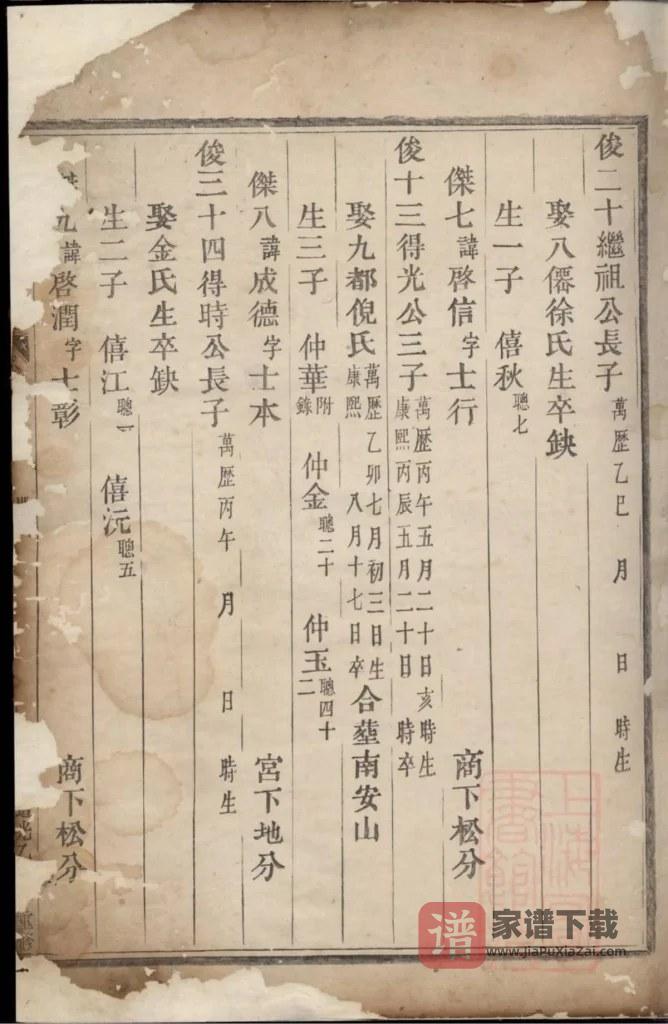 俊二十繼祖公長子 萬歷乙巳 月 日 時生
娶八僊徐氏生卒缺
生一子 僖秋 聰七
傑七 諱 啓信 字 士行 商下松分
俊十三得光公三子 萬歷丙午五月二十日亥時生 康熙丙辰五月二十日 時卒
娶九都倪氏 萬歷乙卯七月初三日生 康熙 八月十七日卒 合塟南安山
生三子 仲華 附錄 仲金 聰二十 仲玉 聰四十二
傑八 諱 成德 字 士本 宮下地分
俊三十四得時公長子 萬歷丙午 月 日 時生
娶金氏生卒缺
生二子 僖江 聰一 僖沅 聰五
傑九 諱 啓潤 字 士彰 商下松分
家谱下载
www.jiapuxiazai.com
谱